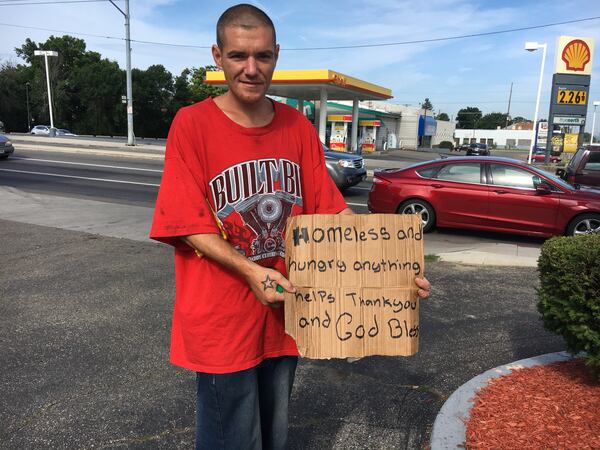 2.26
BUILT BI
Homeless and
hungry anything
helps Thankyou
and God Bless